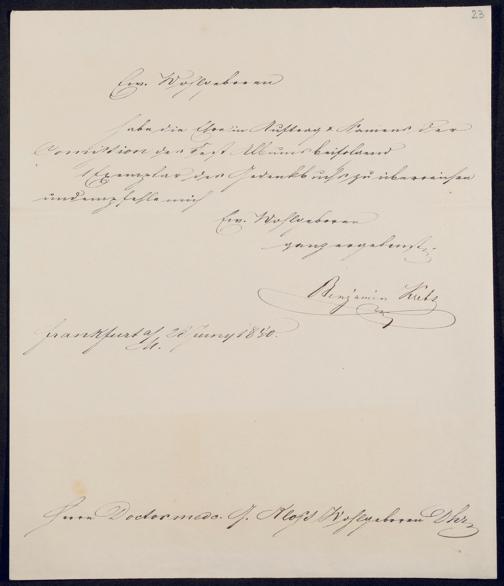 23
Ew. Wohlgeboren
habe die Ehre in Auftrag & Namens der
Comission des Fest Albums beifolgend
1 Exemplar des Gedenkbuchs, zu überreichen
und empfehle mich
Ew. Wohlgeboren
ganz ergebenst
Benjamin
Frankfurt a/M. Juny 1840.
Herrn Doctor med. Wohlgeboren